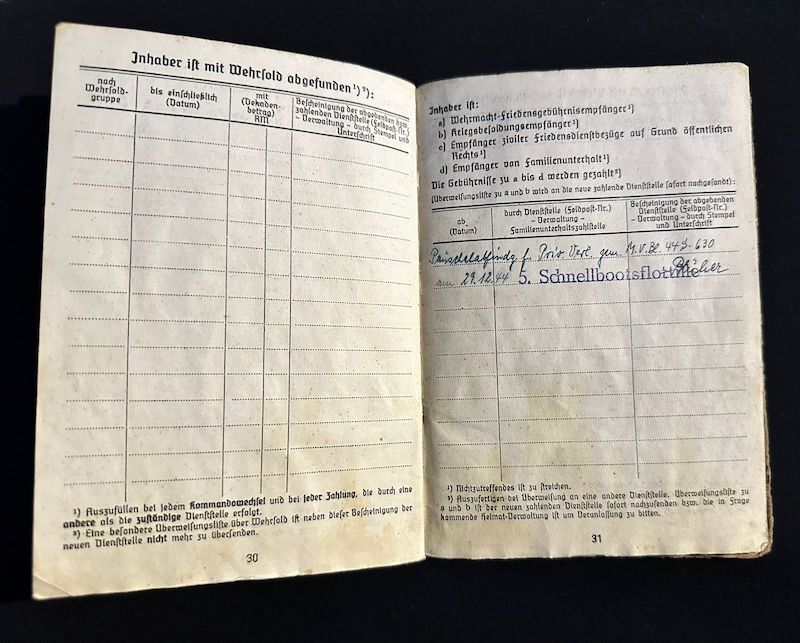 Inhaber ist mit Wehrsold abgefunden¹) ²):
nach
Wehrsold-
gruppe
bis einschließlich
(Datum)
mit
(Dekaden-
betrag)
RM
Bescheinigung der abgebenden bzw.
zahlenden Dienststelle (Feldpost-Nr.)
– Verwaltung – durch Stempel und
Unterschrift
¹) Auszufüllen bei jedem Kommandowechsel und bei jeder Zahlung, die durch eine
andere als die zuständige Dienststelle erfolgt.
²) Eine besondere Überweisungsliste über Wehrsold ist neben dieser Bescheinigung der
neuen Dienststelle nicht mehr zu übersenden.
30
Inhaber ist:
a) Wehrmacht-Friedensgebührnisempfänger¹)
b) Kriegsbesoldungsempfänger¹)
c) Empfänger ziviler Friedensdienstbezüge auf Grund öffentlichen
Rechts¹)
d) Empfänger von Familienunterhalt¹)
Die Gebührnisse zu a bis d werden gezahlt²)
(Überweisungsliste zu a und b wird an die neue zahlende Dienststelle sofort nachgesandt):
ab
(Datum)
durch Dienststelle (Feldpost-Nr.)
– Verwaltung –
Familienunterhaltszahlstelle
Bescheinigung der abgebenden
Dienststelle (Feldpost-Nr.)
– Verwaltung – durch Stempel
und Unterschrift
f. Priv. Verl. gem. M.V.Bl. 44 S. 630
am 29.12.44 5. Schnellbootsflottille
¹) Nichtzutreffendes ist zu streichen.
²) Auszufertigen bei Überweisung an eine andere Dienststelle. Überweisungsliste zu
a und b ist der neuen zahlenden Dienststelle sofort nachzusenden bzw. die in Frage
kommende Heimat-Verwaltung ist um Veranlassung zu bitten.
31